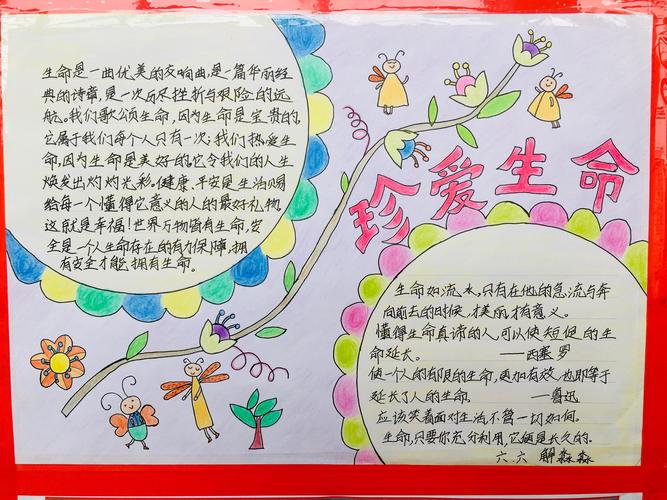 珍爱生命
生命是一曲优美的交响曲,是一篇华丽经
典的诗章,是一次历尽挫折与艰险的远
航。我们歌颂生命,因为生命是宝贵的,
它属于我们每个人只有一次;我们热爱生
命,因为生命是美好的,它令我们的人生
焕发出灼灼光彩。健康、平安是生活赐
给每一个懂得它意义的人的最好礼物,
这就是幸福!世界万物皆有生命,安
全是一个人生命存在的有力保障,拥
有安全才能拥有生命。
生命如流水,只有在他的急流与奔
向前去的时候,才美丽,才有意义。
懂得生命真谛的人,可以使短促的生
命延长。 ——西塞罗
使一个人的有限的生命,更加有效,也即等于
延长了人的生命。 ——鲁迅
应该笑着面对生活,不管一切如何。
生命,只要你充分利用,它便是长久的。
六.六 解淼淼